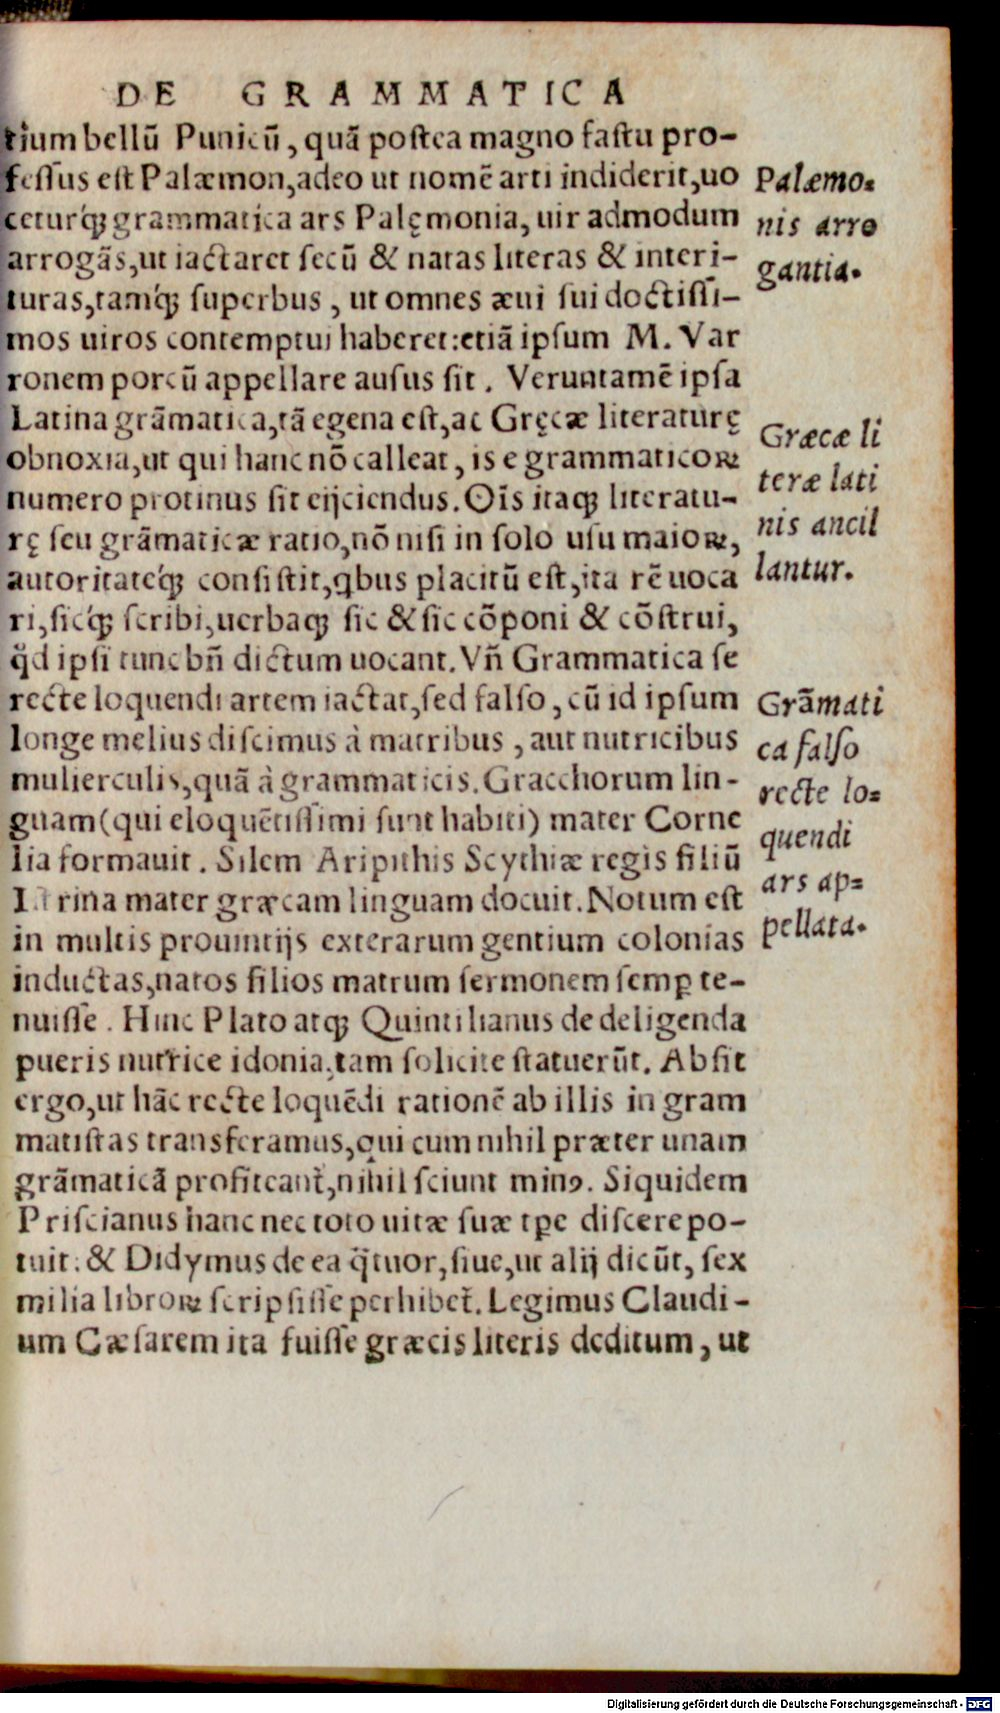 DE GRAMMATICA
tium bellū Punicū, quā postea magno fastu pro-
fessus est Palæmon, adeo ut nomē arti indiderit, uo
ceturq́ꝫ grammatica ars Palęmonia, uir admodum
arrogās, ut iactaret secū & natas literas & interi-
turas, tamq́ꝫ superbus, ut omnes æui sui doctissi-
mos uiros contemptui haberet: etiā ipsum M. Var
ronem porcū appellare ausus sit. Veruntamē ipsa
Latina grāmatica, tā egena est, ac Gręcæ literaturę
obnoxia, ut qui hanc nō calleat, is e grammaticoꝝ
numero protinus sit eijciendus. Oīs itaqꝫ literatu-
rę seu grāmaticæ ratio, nō nisi in solo usu maioꝝ,
autoritateq́ꝫ consistit, qbus placitū est, ita rē uoca
ri, sicq́ꝫ scribi, uerbaqꝫ sic & sic cōponi & cōstrui,
q̊d ipsi tunc bn̄ dictum uocant. Vn̄ Grammatica se
recte loquendi artem iactat, sed falso, cū id ipsum
longe melius discimus à matribus, aut nutricibus
mulierculis, quā à grammaticis. Gracchorum lin-
guam (qui eloquētissimi sunt habiti) mater Corne
lia formauit. Silem Aripithis Scythiæ regis filiū
rina mater græcam linguam docuit. Notum est
in multis prouintijs exterarum gentium colonias
inductas, natos filios matrum sermonem semꝑ te-
nuisse. Hinc Plato atqꝫ Quintilianus de deligenda
pueris nutrice idonia, tam solicite statuerūt. Absit
ergo, ut hāc recte loquēdi rationē ab illis in gram
matistas transferamus, qui cum nihil præter unam
grāmaticā profiteant᷑, nihil sciunt minꝰ. Siquidem
Priscianus hanc nec toto uitæ suæ tꝑe discere po-
tuit: & Didymus de ea q̄tuor, siue, ut alij dicūt, sex
milia libroꝝ scripsisse perhibet᷑. Legimus Claudi-
um Cæsarem ita fuisse græcis literis deditum, ut
Palæmo-
nis arro
gantia.
Græcæ li
teræ lati
nis ancil
lantur.
Grāmati
ca falso
recte lo-
quendi
ars ap-
pellata.
Digitalisierung gefördert durch die Deutsche Forschungsgemeinschaft - DFG